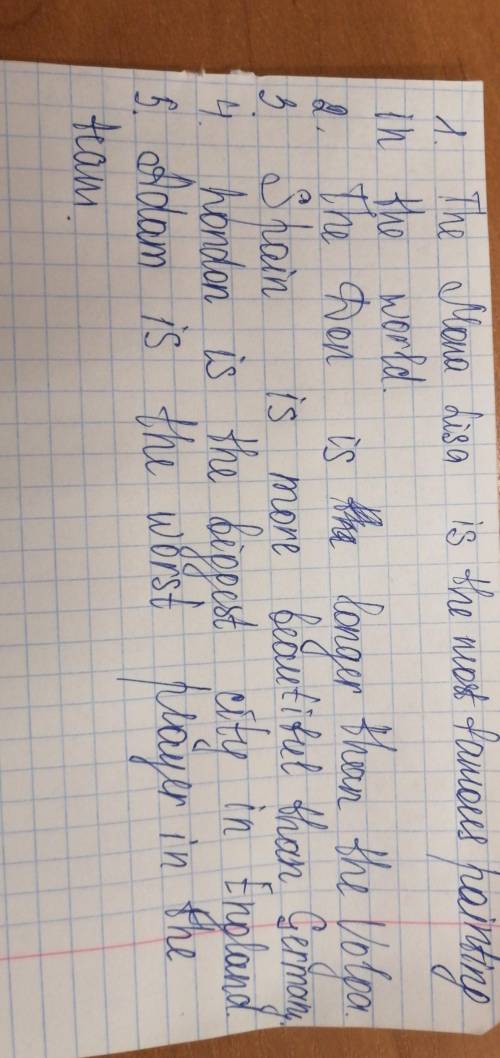 1. The Mona Lisa is the most famous painting
in the world.
2. The Don is the longer than the Volga.
3 Spain is more beautiful than Germany.
4. London is the biggest city in England.
5. Adam is the worst player in the
team.